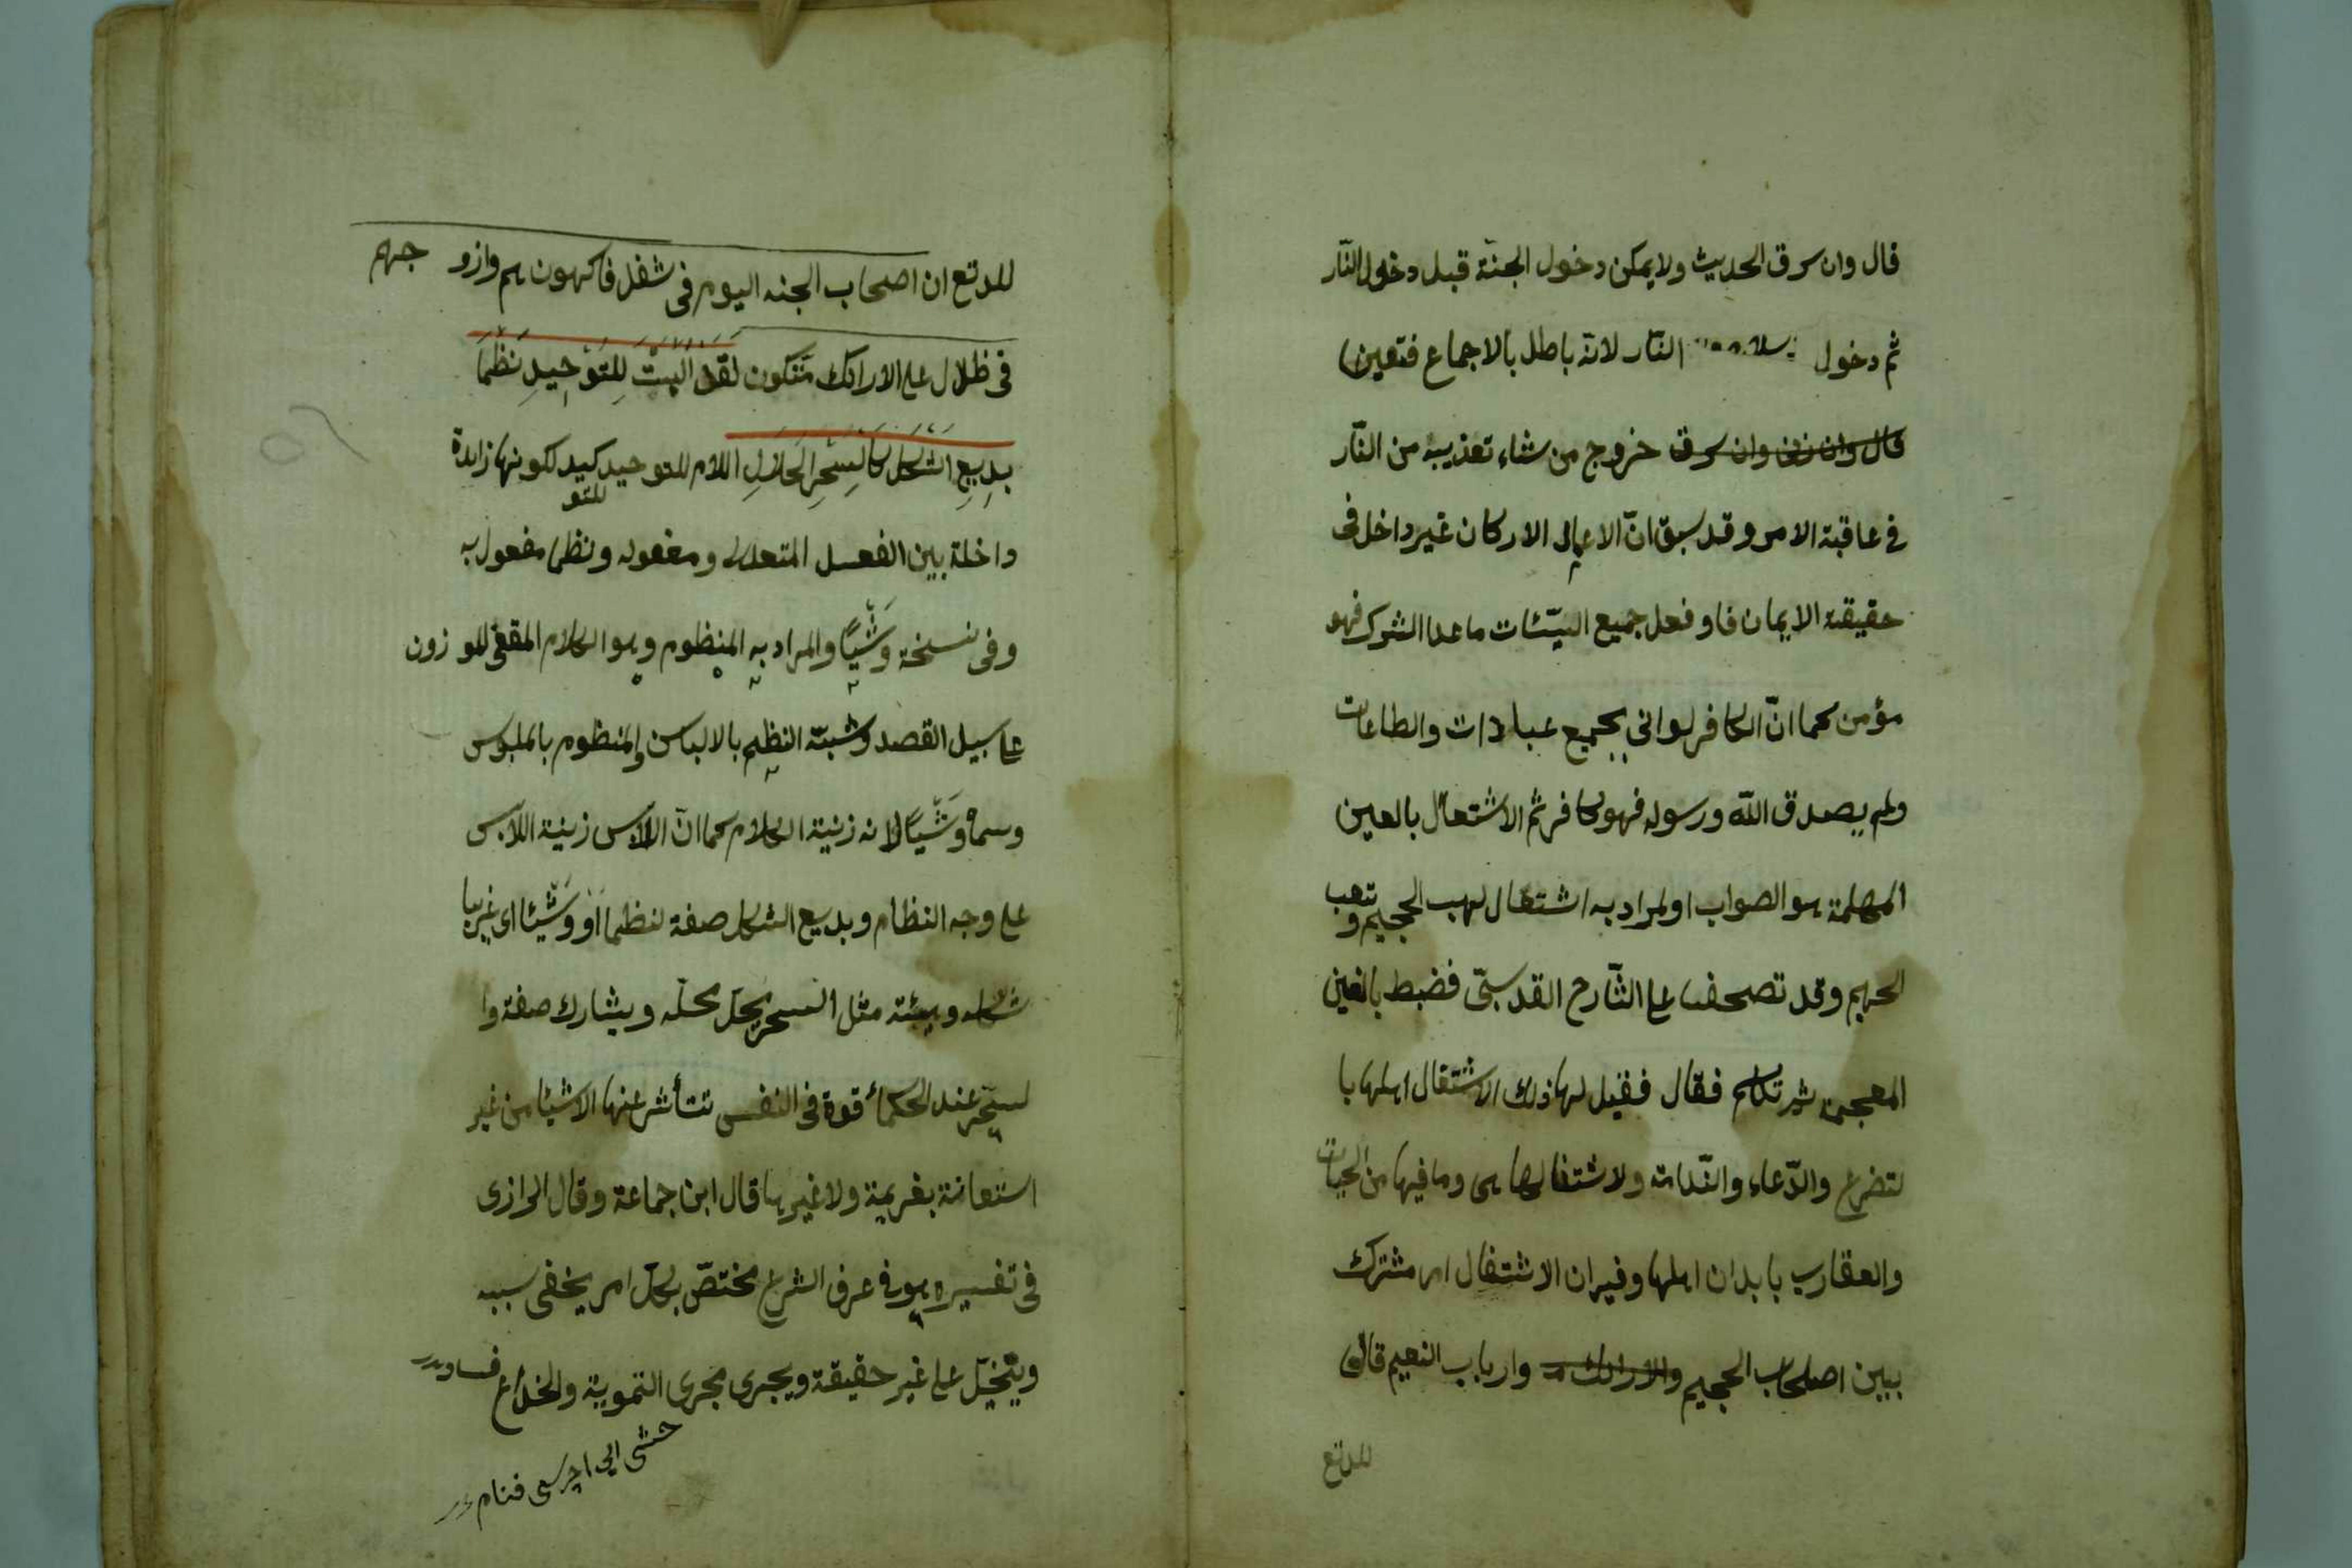 قال وان سرق الحديث ولا يمكن دخول الجنّة قبل دخول النّار
ثم دخول النّار لانّه باطل بالاجماع فتعين
قال وان زنى وان سرق خروج من شاء تعذيبه من النّار
فى عاقبة الامر وقد سبق انّ الاعمال الاركان غير داخل فى
حقيقة الايمان فاو فعل جميع السيّئات ما عدا الشرك فهو
مؤمن كما انّ الكافر لو اتى بجميع عبادات والطاعات
ولم يصدق اللّه ورسوله فهو كافر ثم الاشتعال بالعين
المهملة هو الصواب اولمراد به اشتعال لهب الجحيم وتعب
الحميم وقد تصحف على الشّارح القدسىّ فضبط بالغين
المعجمة ثم تكلم فقال فقيل لها ذلك الاشتغال اهلها با
لتضرع والدّعاء والنّدامة ولاشتغالها هى وما فيها من الحيات
والعقارب بابدان اهلها وفيه ان الاشتغال امر مشترك
بيين اصحاب الجحيم والارائك وارباب النعيم قال
للّه تع
للّه تع ان اصحاب الجنه اليوم فى شغل فاكهون هم وازو جهم
فى ظلال على الارائك متكون لقد البست للتّوحيد نظما
بديع الشكل كالسحر الحلال اللام للتوحيد كيد لكونها زايدة
للتو
داخلة بين الفعل المتعدى ومفعوله ونظما مفعول به
وفى نسخة وشّيًا والمراد به المنظوم وهو الكلام المقفى للموزون
على سبيل القصد وشبّه النظم بالالباس والمنظوم بالملبوس
وسماه وشّيًا لانه زينة الكلام كما انّ اللابس زينة اللابس
على وجه النظام وبديع الشكل صفة لنظما او وشّيئا اى غريبا
شكله وهيئة مثل السحر يحلّ محلّه ويشارك صفة وا
لسحر عند الحكماء قوة فى النفس تتأثر عنها الاشيا من غير
استعانة بغريمة ولا غيرها قال ابن جماعة وقال الرازى
فى تفسيره هو فى عرف الشرع مختصّ بكلّ امر يخفى سببه
ويتخيّل على غير حقيقة ويجرى مجرى التموية والخداع